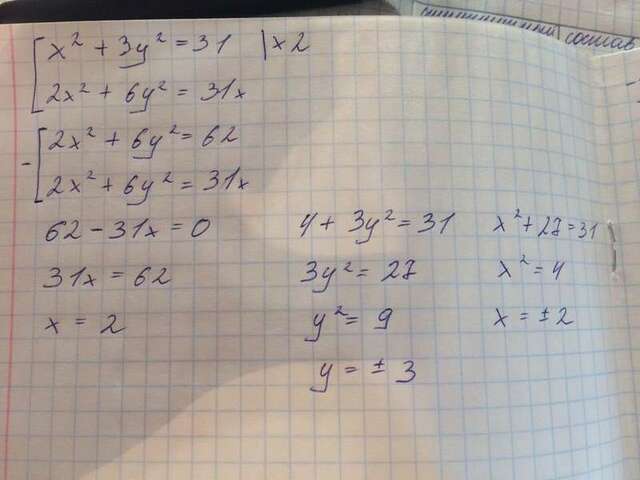 состав
x² + 3y² = 31 | x 2
2x² + 6y² = 31x
- 2x² + 6y² = 62
2x² + 6y² = 31x
62 - 31x = 0
31x = 62
x = 2
4 + 3y² = 31
3y² = 27
y² = 9
y = ± 3
x² + 27 = 31
x² = 4
x = ± 2